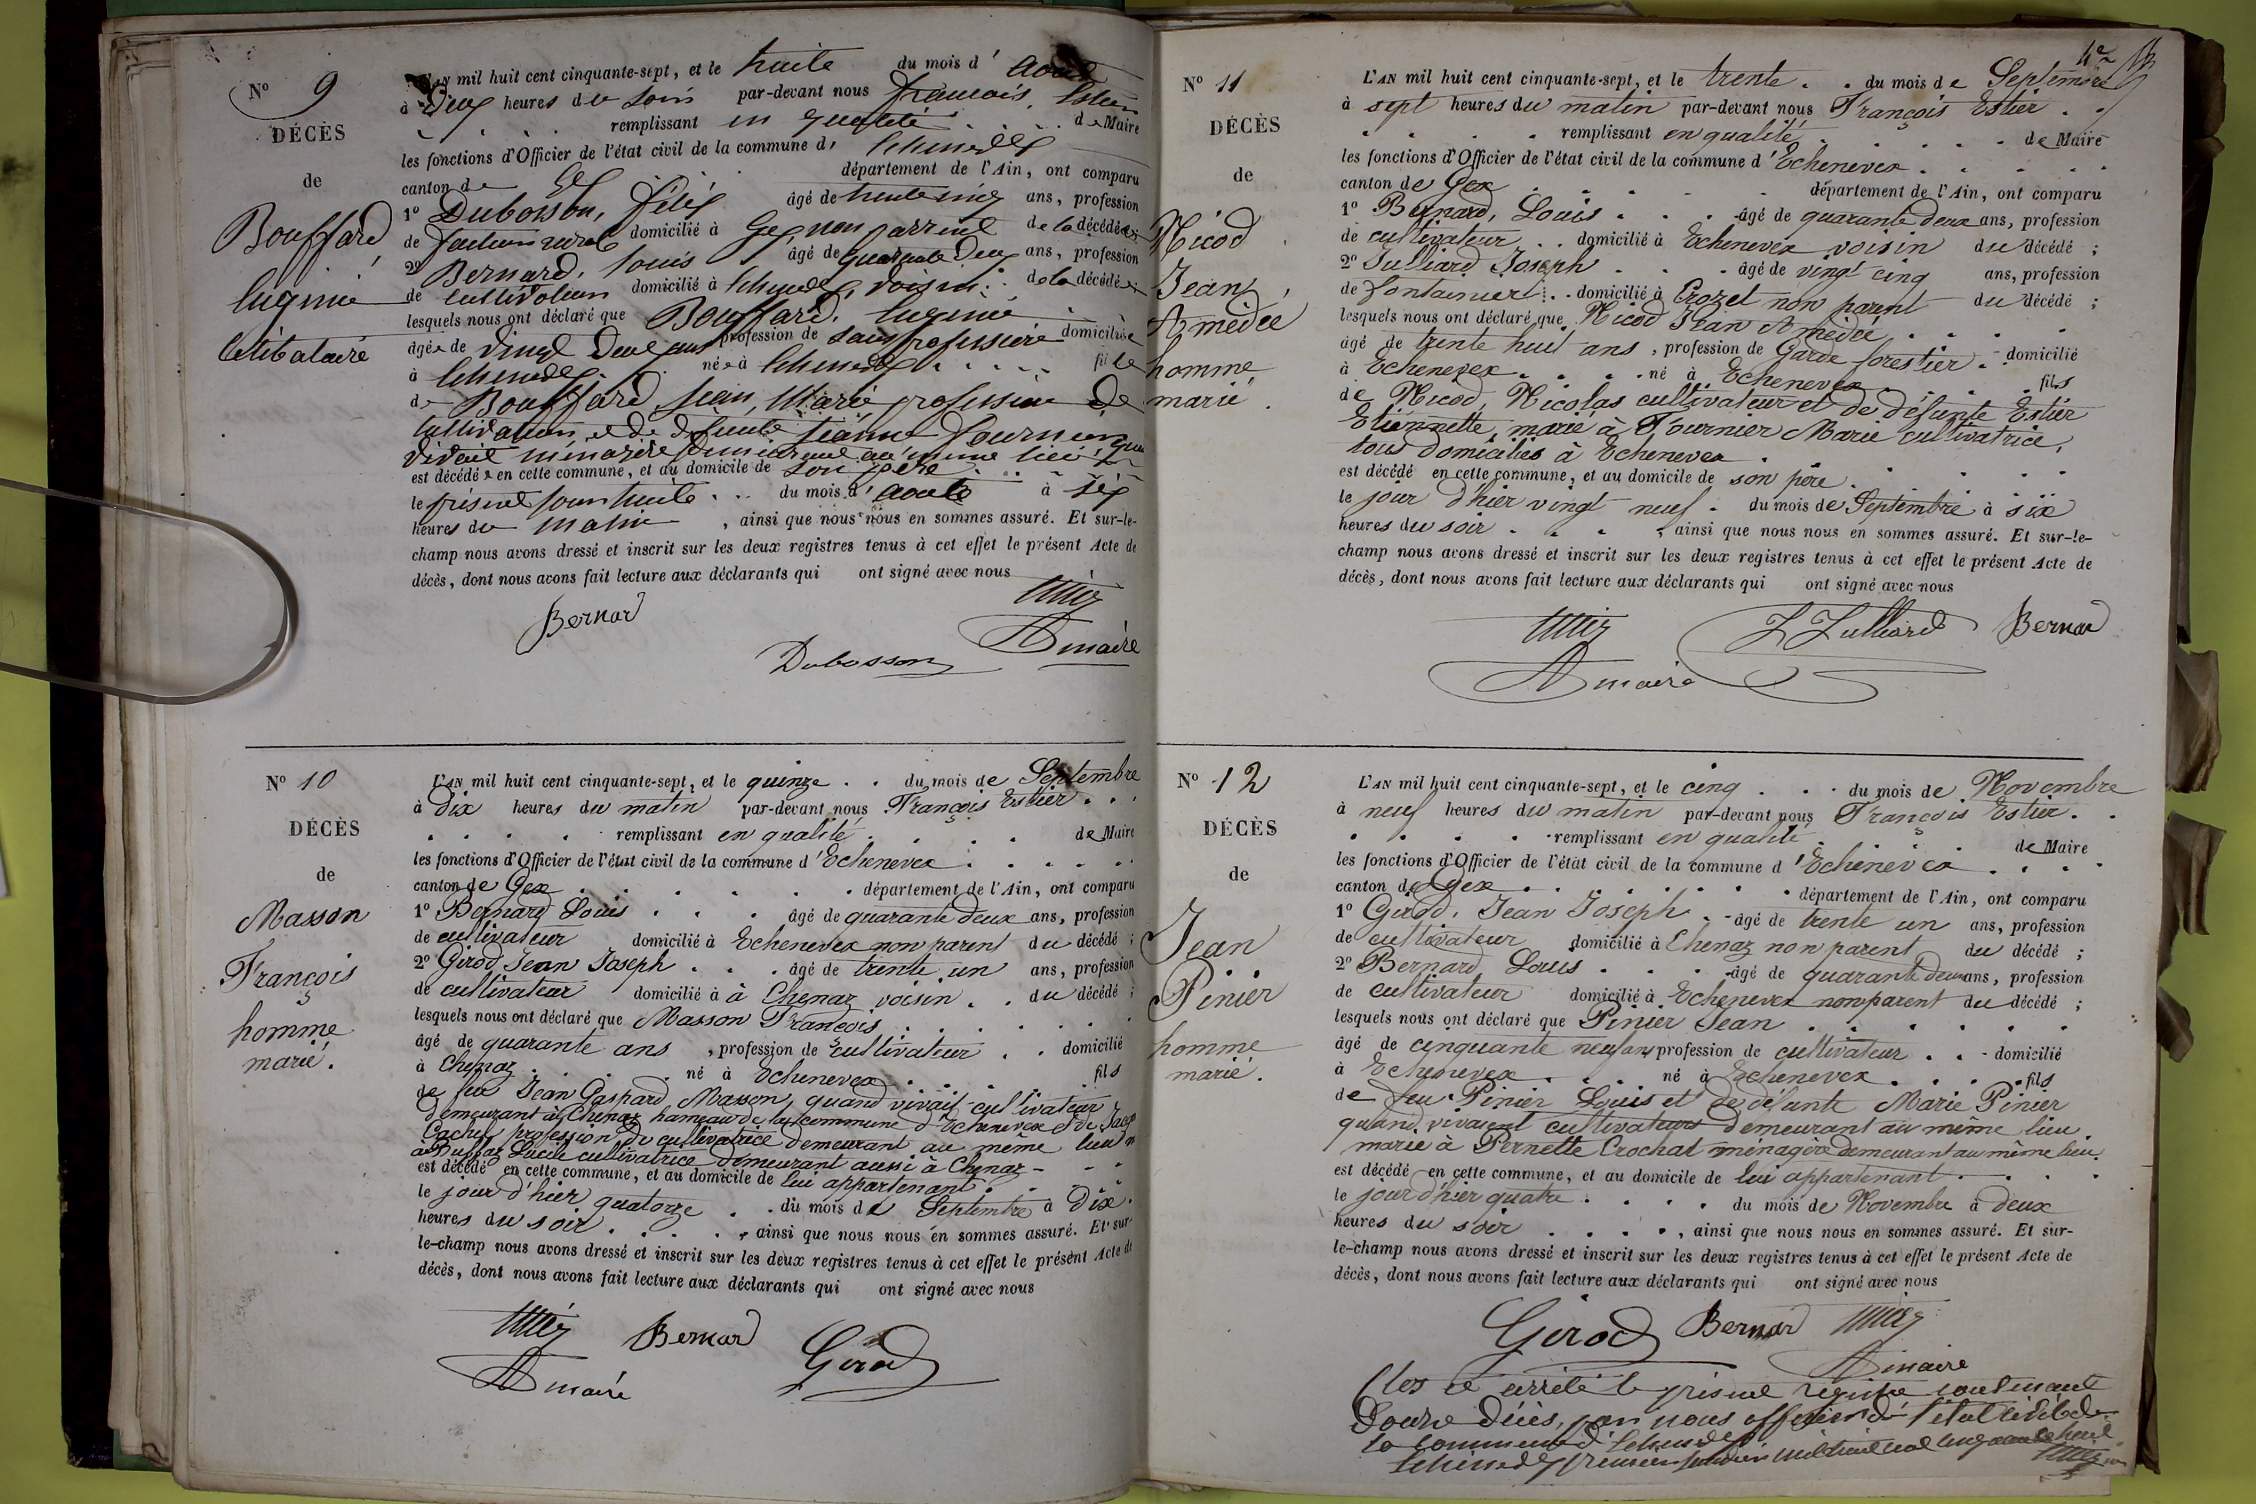 Nº 9
DÉCÈS
de
Bouffard
Eugénie
Célibataire
L'AN mil huit cent cinquante-sept, et le huite du mois d' Aoute
à Deux heures du Soir par-devant nous francois Estier
remplissant en qualité de Maire
les fonctions d'Officier de l'état civil de la commune d' Echenevex
canton de Gex département de l'Ain, ont comparu
1º Dubosson, félix âgé de trente cinq ans, profession
de facteur rural domicilié à Gex, non parrent de la décédée;
2º Bernard, Louis âgé de quarante Deux ans, profession
de Cultivateur domicilié à Echenevex, voisin de la décédée;
lesquels nous ont déclaré que Bouffard, Eugénie
âgée de vingt Deux ans profession de sans profession domiciliée
à Echenevex née à Echenevex fille
de Bouffard, Jean Marie profession de
Cultivateur, et de Défunte Jeanne Fournier, quand
vivait ménagère demeurant au même lieu
est décédée en cette commune, et au domicile de son père
le présent jour huite du mois d' aoute à six
heures du matin, ainsi que nous nous en sommes assuré. Et sur-le-
champ nous avons dressé et inscrit sur les deux registres tenus à cet effet le présent Acte de
décès, dont nous avons fait lecture aux déclarants qui ont signé avec nous
Bernard
Estier
Dubosson
maire
Nº 10
DÉCÈS
de
Masson
François
homme
marié.
L'AN mil huit cent cinquante-sept, et le quinze . . du mois de Septembre
à Dix heures du matin par-devant nous François Estier . . .
remplissant en qualité de Maire
les fonctions d'Officier de l'état civil de la commune d'Echenevex
canton de Gex département de l'Ain, ont comparu
1º Bernard Louis âgé de quarante deux ans, profession
de cultivateur domicilié à Echenevex non parent du décédé;
2º Girod, Jean Joseph âgé de trente un ans, profession
de cultivateur domicilié à à Chenaz voisin du décédé;
lesquels nous ont déclaré que Masson François
âgé de quarante ans, profession de cultivateur domicilié
à Chenaz né à Echenevex fils
de feu Jean Gaspard Masson, quand vivait cultivateur
demeurant à Chenaz hameau de la commune d'Echenevex et de
Cachet profession de cultivatrice demeurant au même lieu
à Buffaz Lucile cultivatrice demeurant aussi à Chenaz
est décédé en cette commune, et au domicile de lui appartenant
le jour d'hier quatorze du mois de Septembre à Dix
heures du soir, ainsi que nous nous en sommes assuré. Et sur-
le-champ nous avons dressé et inscrit sur les deux registres tenus à cet effet le présent Acte de
décès, dont nous avons fait lecture aux déclarants qui ont signé avec nous
Estier Bernard Girod
maire
Nº 11
DÉCÈS
de
Nicod
Jean,
Amédée
homme
marié
L'AN mil huit cent cinquante-sept, et le trente . . du mois de Septembre
à sept heures du matin par-devant nous François Estier . .
remplissant en qualité de Maire
les fonctions d'Officier de l'état civil de la commune d'Echenevex
canton de Gex département de l'Ain, ont comparu
1º Bernard, Louis âgé de quarante deux ans, profession
de cultivateur domicilié à Echenevex voisin du décédé;
2º Julliard Joseph âgé de vingt cinq ans, profession
de fontainier domicilié à Crozet non parent du décédé;
lesquels nous ont déclaré que Nicod Jean Amédée
âgé de trente huit ans, profession de Garde forestier domicilié
à Echenevex né à Echenevex fils
de Nicod, Nicolas cultivateur et de défunte Estier
Etiennette, marié à Fournier Marie cultivatrice,
tous domiciliés à Echenevex
est décédé en cette commune, et au domicile de son père
le jour d'hier vingt neuf du mois de Septembre à six
heures du soir, ainsi que nous nous en sommes assuré. Et sur-le-
champ nous avons dressé et inscrit sur les deux registres tenus à cet effet le présent Acte de
décès, dont nous avons fait lecture aux déclarants qui ont signé avec nous
Estier J Julliard Bernard
maire
Nº 12
DÉCÈS
de
Jean
Pinier
homme
marié.
L'AN mil huit cent cinquante-sept, et le cinq . . . du mois de Novembre
à neuf heures du matin par-devant nous François Estier . .
remplissant en qualité de Maire
les fonctions d'Officier de l'état civil de la commune d'Echenevex
canton de Gex département de l'Ain, ont comparu
1º Girod, Jean Joseph âgé de trente un ans, profession
de cultivateur domicilié à Chenaz non parent du décédé;
2º Bernard Louis âgé de quarante deux ans, profession
de cultivateur domicilié à Echenevex non parent du décédé;
lesquels nous ont déclaré que Pinier Jean
âgé de cinquante neuf ans profession de cultivateur domicilié
à Echenevex né à Echenevex fils
de feu Pinier Louis et de défunte Marie Pinier
quand vivaient cultivateurs demeurant au même lieu
marié à Pernette Crochat ménagère demeurant au même lieu.
est décédé en cette commune, et au domicile de lui appartenant
le jour d'hier quatre du mois de Novembre à deux
heures du soir, ainsi que nous nous en sommes assuré. Et sur-
le-champ nous avons dressé et inscrit sur les deux registres tenus à cet effet le présent Acte de
décès, dont nous avons fait lecture aux déclarants qui ont signé avec nous
Girod Bernard Estier
maire
Clos et arrêté le présent régistre contenant
Douze Décès, par nous officier de l'état civil de
la commune d'Echenevex
Echenevex premier janvier mil huit cent cinquante huit
Estier